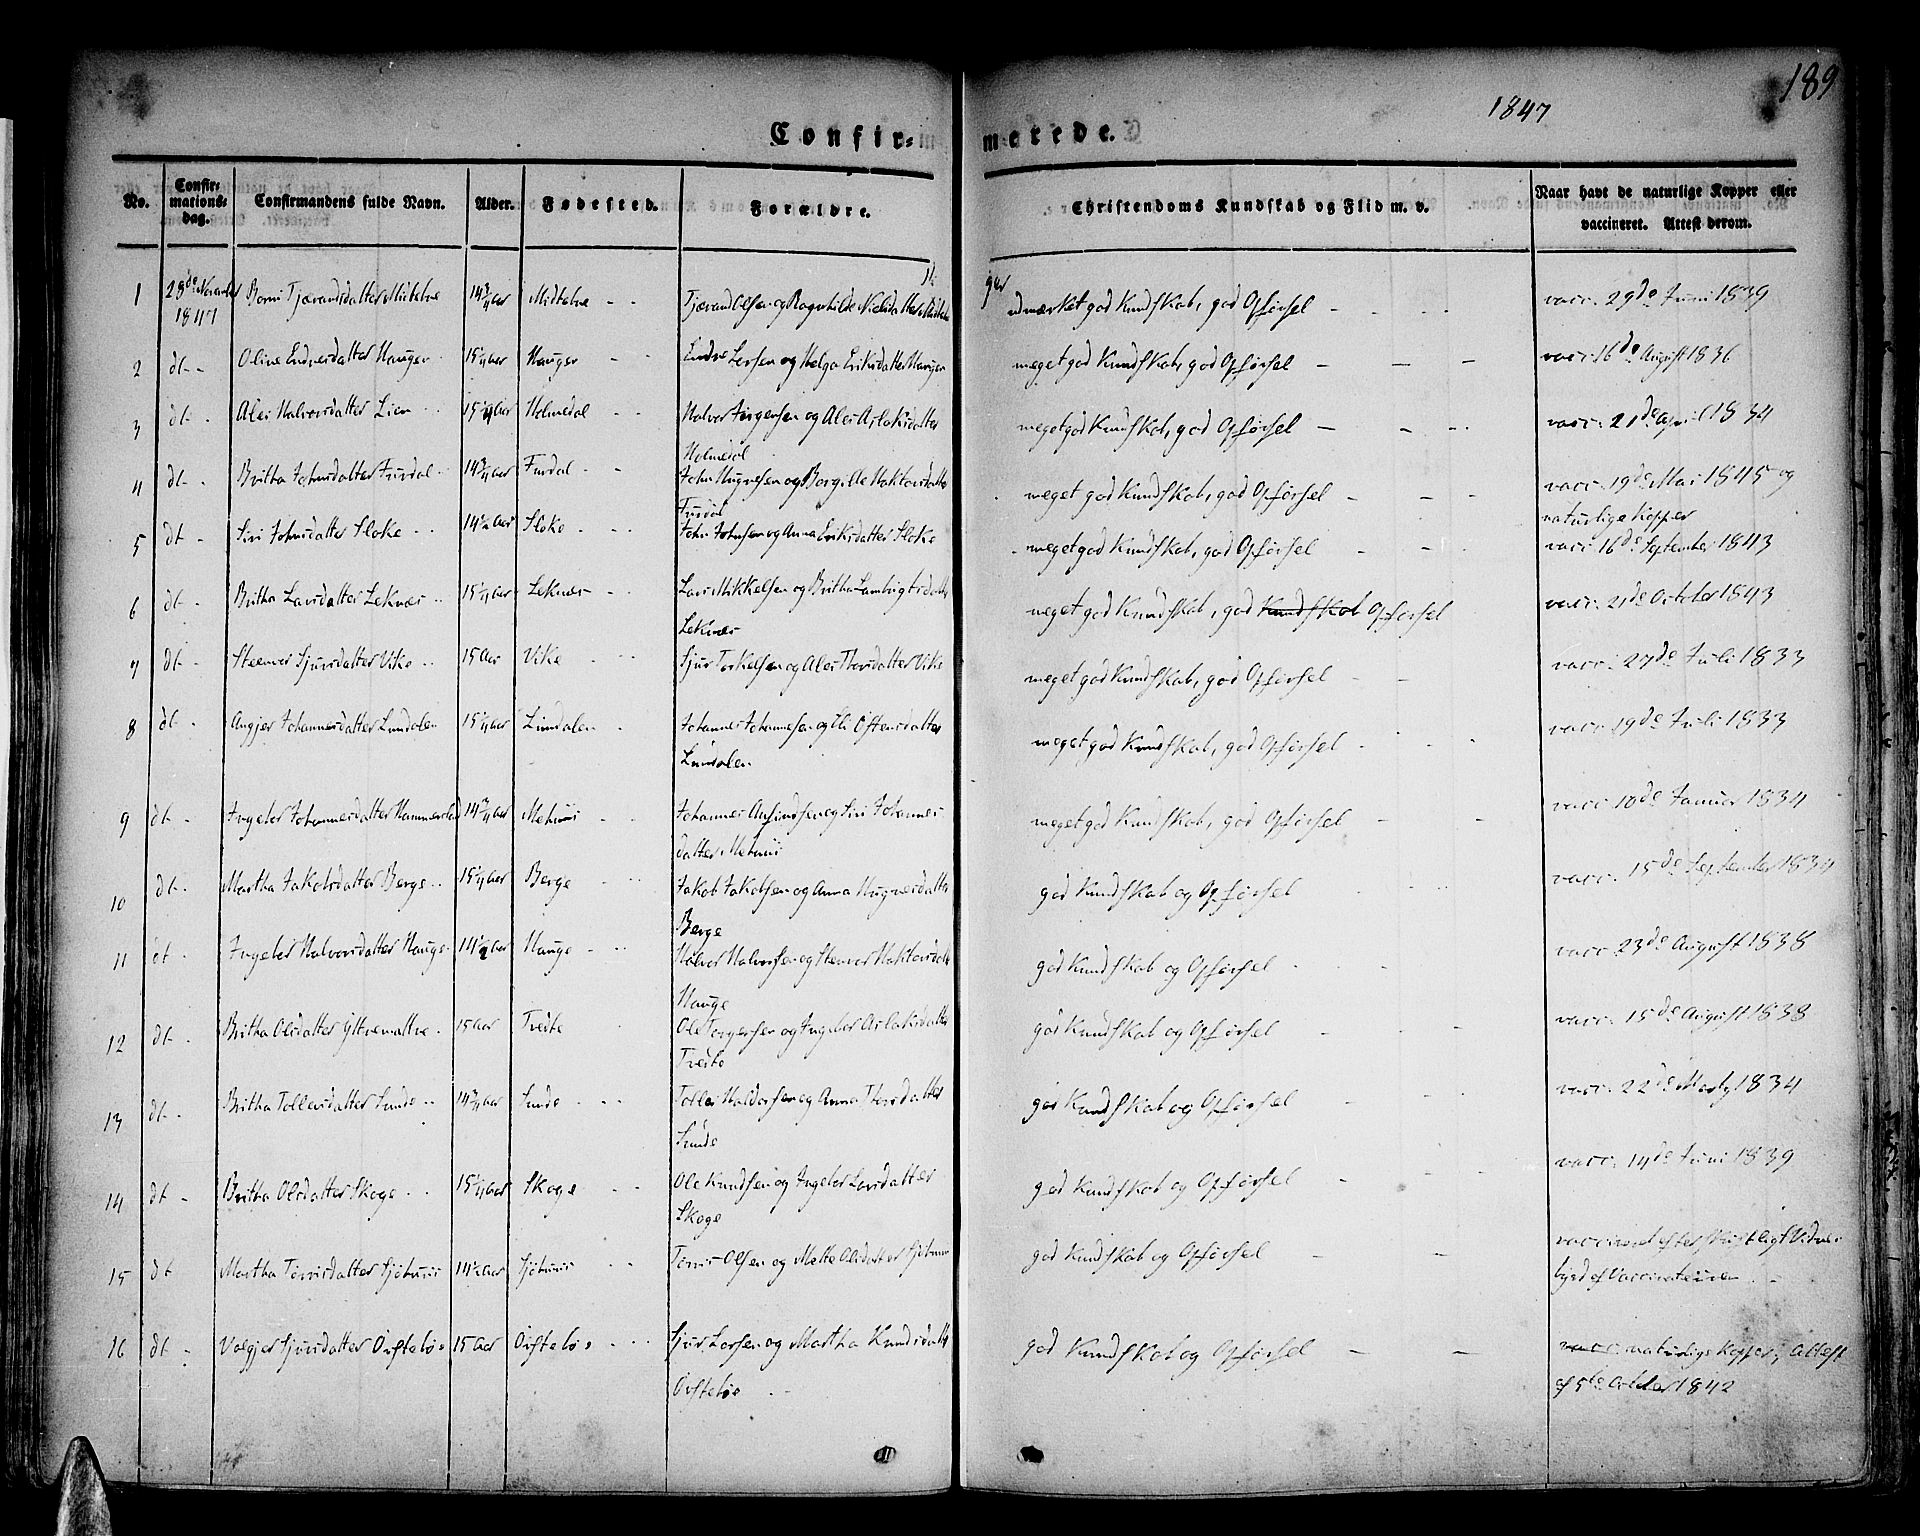 189
1847
Confir= merede.
No. Confir=mations=dag. Confirmandens fulde Navn. Alder. Fødested. Forældre. Christendoms Kundskab og Flid m. v. Naar havt de naturlige Kopper eller vaccineret. Attest derom.
1 28de November 1847 Tjærandsdatter Midtølne 14¾ Aar Midtølne - - Tjærand Olsen og Ragnhilde Nielsdatter udmærket god Kundskab, god Opførsel - vacc. 29de Juni 1839
2 dt - Oline Endresdatter Hauger 15¼ Aar Hauger - - Endre Larsen og Helga Eriksdatter Hauger meget god Kundskab, god Opførsel - - - vacc. 16de August 1836
3 dt - Halvorsdatter Lien 15¼ Aar Holmedal - - Halvor Jørgensen og Aslaksdatter meget god Kundskab, god Opførsel - - - vacc. 21de April 1834
Holmedal
4 dt - Britha Johnsdatter Furdal 14¾ Aar Furdal - - John Hugnesen og Borgille Haktorsdatter meget god Kundskab, god Opførsel - - - vacc. 19de Mai 1845 og
Furdal naturlige Kopper
5 dt - Siri Johnsdatter Sloke 14½ Aar Sloke - - John Johnsen og Anna Eriksdatter Sloke meget god Kundskab, god Opførsel - - - vacc. 16de September 1843
6 dt - Britha Larsdatter Leknes 15¼ Aar Leknes - Lars Mikkelsen og Britha Lambrigtsdatter meget god Kundskab, god Kundskab Opførsel vacc. 21de October 1843
Leknes
7 dt - Steenver Sjursdatter Vike 15 Aar Vike - - Sjur Torkelsen og Thorsdatter Vike meget god Kundskab, god Opførsel - - vacc. 27de Juli 1833
8 dt - Johannesdatter Lundalen 15¼ Aar Lundalen - Johannes Johannesen og Eli Østensdatter meget god Kundskab, god Opførsel - - vacc. 19de Juli 1833
Lundalen
9 dt - Ingeler Johannesdatter 14¾ Aar - Johannes Anfindsen og Siri Johannes meget god Kundskab, god Opførsel - - vacc. 10de Januar 1834
datter
10 dt - Martha Jakobsdatter Berge 15¼ Aar Berge Jakob Jakobsen og Anna Hugnesdatter god Kundskab og Opførsel vacc. 15de September 1834
Berge
11 dt - Ingeler Halvorsdatter Hauge 14½ Aar Hauge - - Halvor Halvorsen og Stenver Haktorsdatter god Kundskab og Opførsel - - vacc. 23de August 1838
Hauge
12 dt - Britha Olsdatter 15 Aar Tveite Ole Torgersen og Ingeler Aslaksdatter god Kundskab og Opførsel - - vacc. 15de August 1838
Tveite
13 dt - Britha Tollevsdatter Sunde 14¾ Aar Sunde - - Tollev Haldorsen og Anna Thorsdatter god Kundskab og Opførsel - - vacc. 22de 1834
Sunde
14 dt - Britha Olsdatter Skoge 15¼ Aar Skoge - - Ole Knudsen og Ingeler Larsdatter god Kundskab og Opførsel - vacc. 14de Juni 1839
Skoge
15 dt Martha 14½ Aar - - Olsen og Mette Olsdatter god Kundskab og Opførsel - - vaccineret efter skriftligt Vidnes
byrd af Vaccinateuren
16 dt - Valgjer Sjursdatter 15 Aar - - Sjur Larsen og Martha Knudsdatter god Kundskab og Opførsel - - vacc. naturlige Kopper, Attest
af 5te October 1842